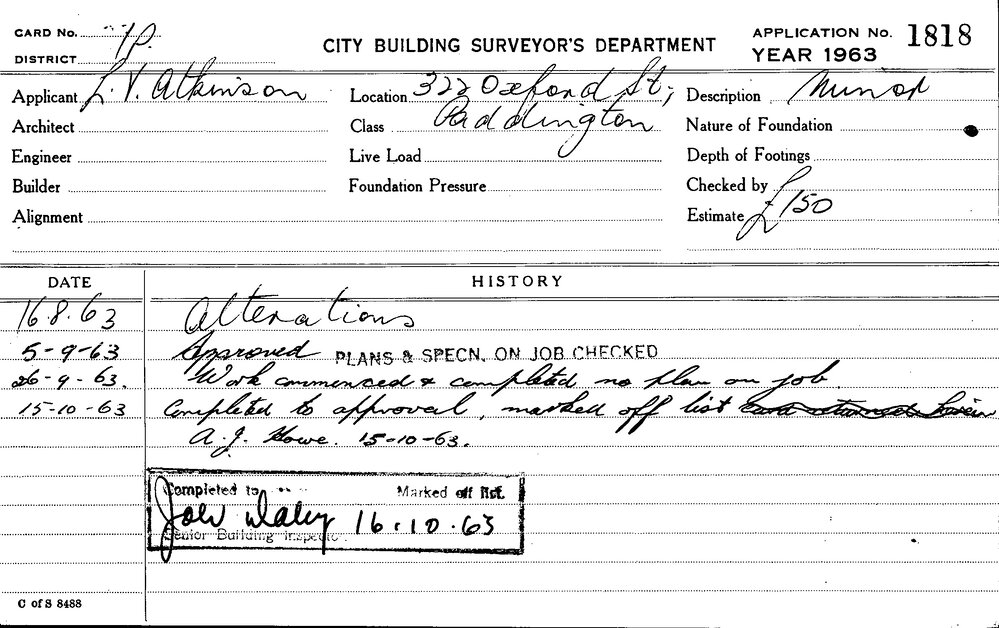 CARD No.
CITY BUILDING SURVEYOR'S DEPARTMENT
APPLICATION No. 1818
YEAR 1963
DISTRICT
Applicant L. V. Atkinson
Location 322 Oxford St;
Paddington
Description Minor
Architect
Class
Nature of Foundation
Engineer
Live Load
Depth of Footings
Builder
Foundation Pressure
Checked by
Alignment
Estimate £150
DATE
HISTORY
16.8.63 Alterations
5-9-63 Approved PLANS & SPECN. ON JOB CHECKED
26-9-63. Work commenced & completed no plan on job.
15-10-63 Completed to approval, marked off list
A.J. Howe. 15-10-63.
Completed to Marked off list.
16.10.63
Senior Building Inspector
C of S 8488